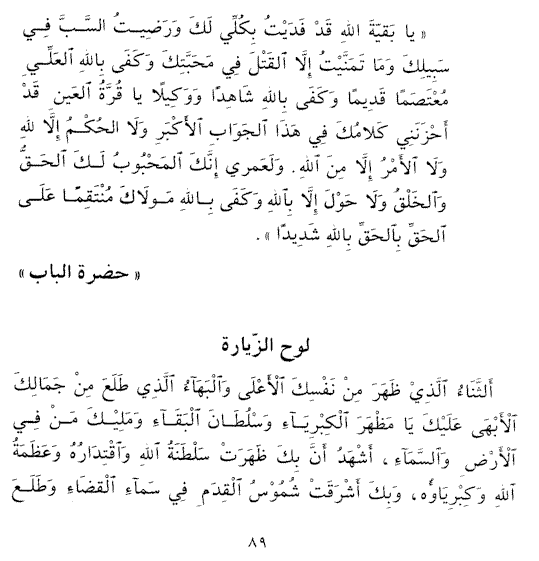 « يا بَقيَّةَ اللهِ قَدْ فَدَيْتُ بِكُلِّي لَكَ وَرَضِيتُ السَّبَّ فِي
سَبِيلِكَ وَمَا تَمَنَّيْتُ إِلَّا ٱلقَتْلَ فِي مَحَبَّتِكَ وَكَفَى بِٱللهِ ٱلعَلِّي
مُعْتَصَمًا قَدِيمًا وَكَفَى بِٱللهِ شَاهِدًا وَوَكِيلًا يا قُرَّةَ ٱلعَين قَدْ
أَحْزَنَنِي كَلَامُكَ فِي هَذَا ٱلجَوَابِ ٱلأَكْبَرِ وَلَا ٱلحُكْمُ إِلَّا للهِ
وَلَا ٱلأَمْرُ إِلَّا مِنَ ٱللهِ. وَلَعَمري إِنَّكَ ٱلمَحْبُوبُ لَكَ ٱلحَقُّ
وَٱلخَلْقُ وَلَا حَوْلَ إِلَّا بِٱللهِ وَكَفَى بِٱللهِ مَوْلَاكَ مُنْتَقِمًا عَلَى
ٱلحَقِّ بِٱلحَقِّ بِٱللهِ شَدِيدًا ».
« حضرة الباب »
لوح الزّيارة
أَلثَّنَاءُ ٱلَّذِيْ ظَهَرَ مِنْ نَفْسِكَ ٱلْأَعْلَى وَٱلْبَهَآءُ ٱلَّذِي طَلَعَ مِنْ جَمَالِكَ
ٱلْأَبْهَى عَلَيْكَ يَا مَظْهَرَ ٱلْكِبْرِيَآءِ وَسُلْطَانَ ٱلْبَقَآءِ وَمَلِيْكَ مَنْ فِي
ٱلْأَرْضِ وَٱلسَّمَآءِ، أَشْهَدُ أَنَّ بِكَ ظَهَرَتْ سَلْطَنَةُ ٱللهِ وَٱقْتِدَارُهُ وَعَظَمَةُ
ٱللهِ وَكِبْرِيَاوُه، وَبِكَ أَشْرَقَتْ شُمُوْسُ ٱلْقِدَمِ فِي سَمآءِ ٱلْقَضَاءِ وَطَلَعَ
٨٩